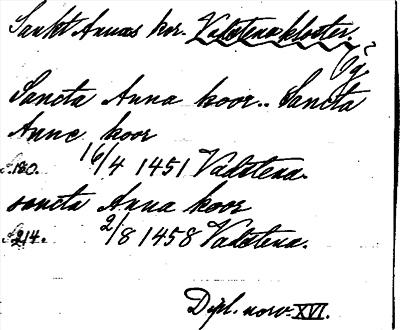 Sankt Annas kor. Vadstena kloster.
Ög
Sancta Anna koor.. Sancta
Anne koor
s. 180. 16/4 1451 Vadstena.
sancta Anna koor
s. 214. 2/8 1458 Vadstena.
Dipl. norv. XVI.